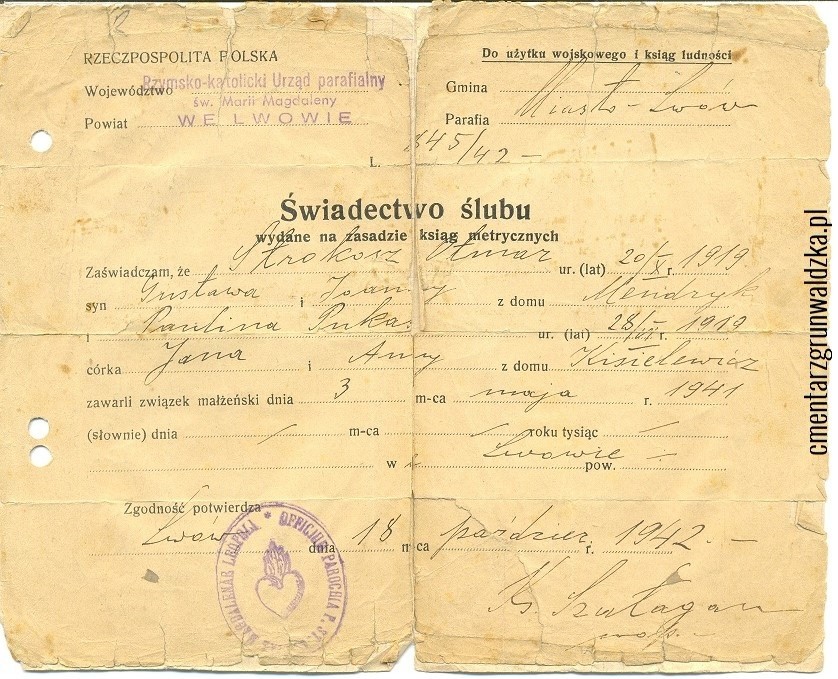 RZECZPOSPOLITA POLSKA
Rzymsko-katolicki Urząd parafialny
Województwo
św. Marii Magdaleny
Powiat WE LWOWIE
Do użytku wojskowego i ksiąg ludności
Gmina Miasto-Lwów
Parafia
L. 845/42 -
Świadectwo ślubu
wydane na zasadzie ksiąg metrycznych
Zaświadczam, że Strokosz Otmar ur. (lat) 20/X r. 1919
syn Gustawa i Joanny z domu Mendryk
i Paulina Pukas ur. (lat) 28/VI r. 1919
córka Jana i Anny z domu Kisielewicz
zawarli związek małżeński dnia 3 m-ca maja r. 1941
(słownie) dnia m-ca roku tysiąc
w Lwowie pow.
Zgodność potwierdza
Lwów dnia 18 m-ca paździer. r. 1942. -
OFFICIUM PAROCHIA MAGDALENAE LEOPOLI
Ks.
cmentarzgrunwaldzka.pl